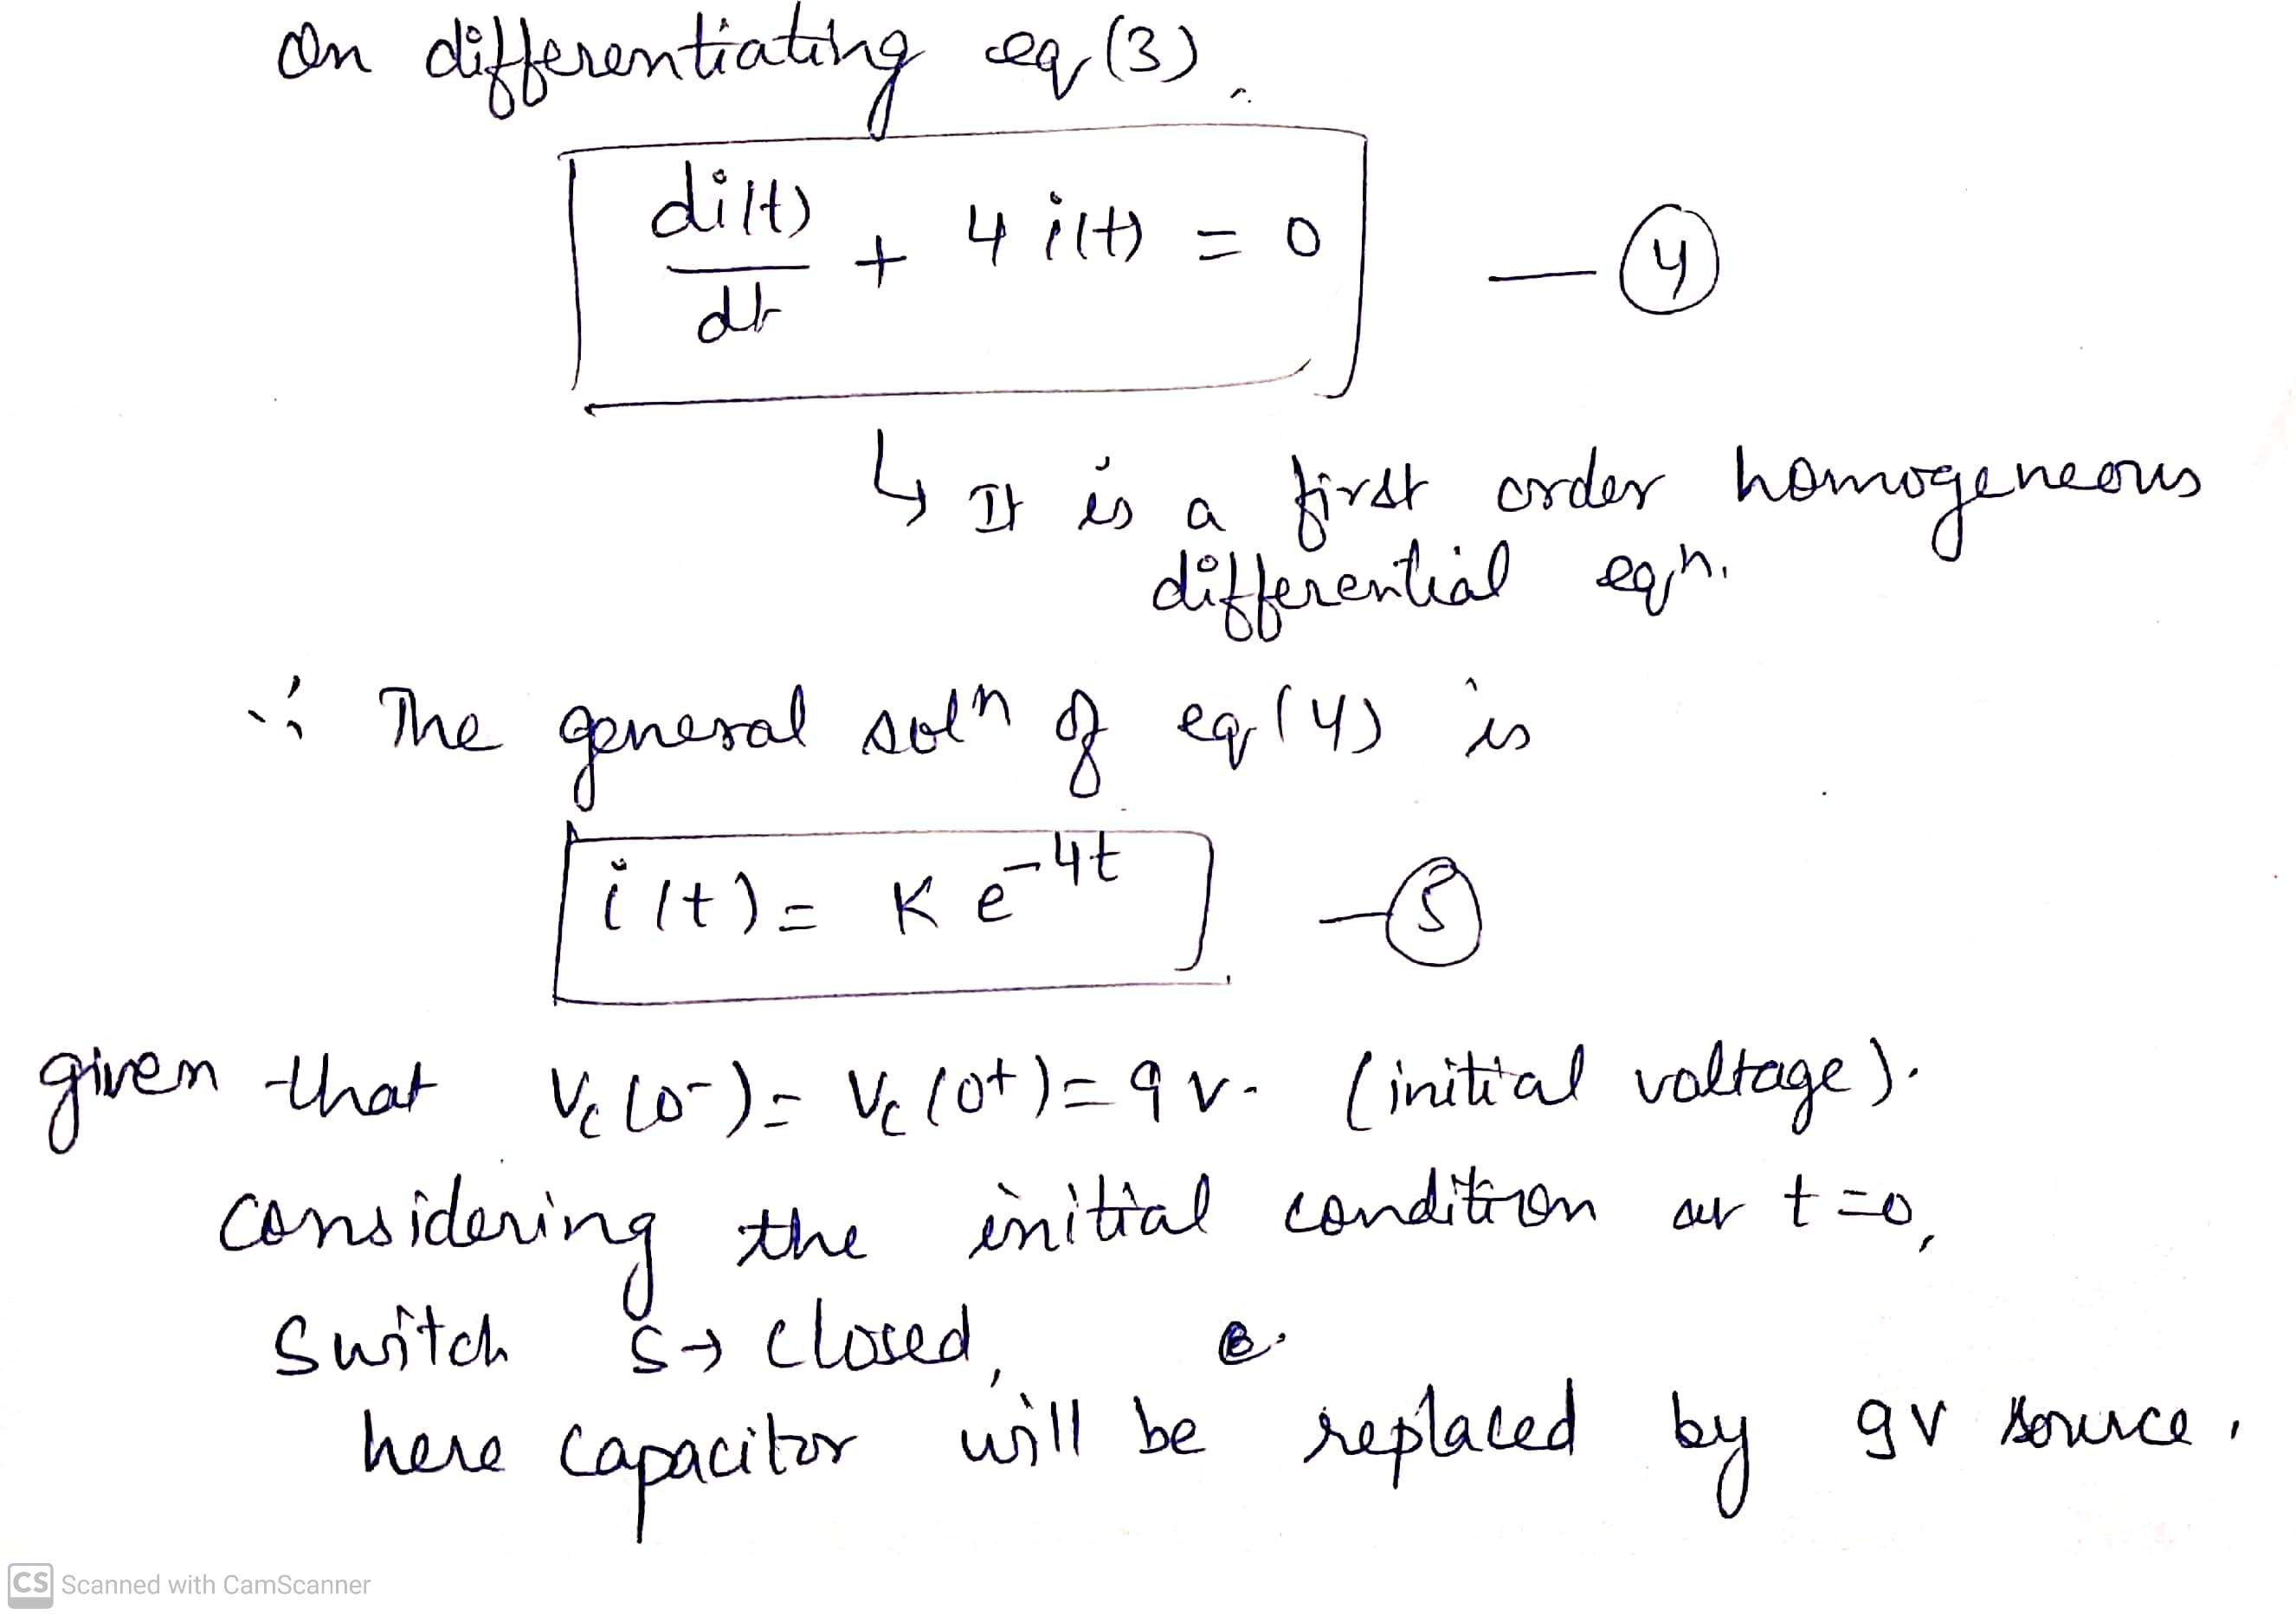 On differentiating eq (3),
di(t)/dt + 4 i(t) = 0 — (4)
↳ It is a first order homogeneous
differential eqn.
∴ The general solⁿ of eq (4) is
i(t) = K e^-4t — (5)
given that Vc(0-) = Vc(0+) = 9 v. (initial voltage).
Considering the initial condition at t=0,
Switch S → closed,
here capacitor will be replaced by 9V source.
CS Scanned with CamScanner